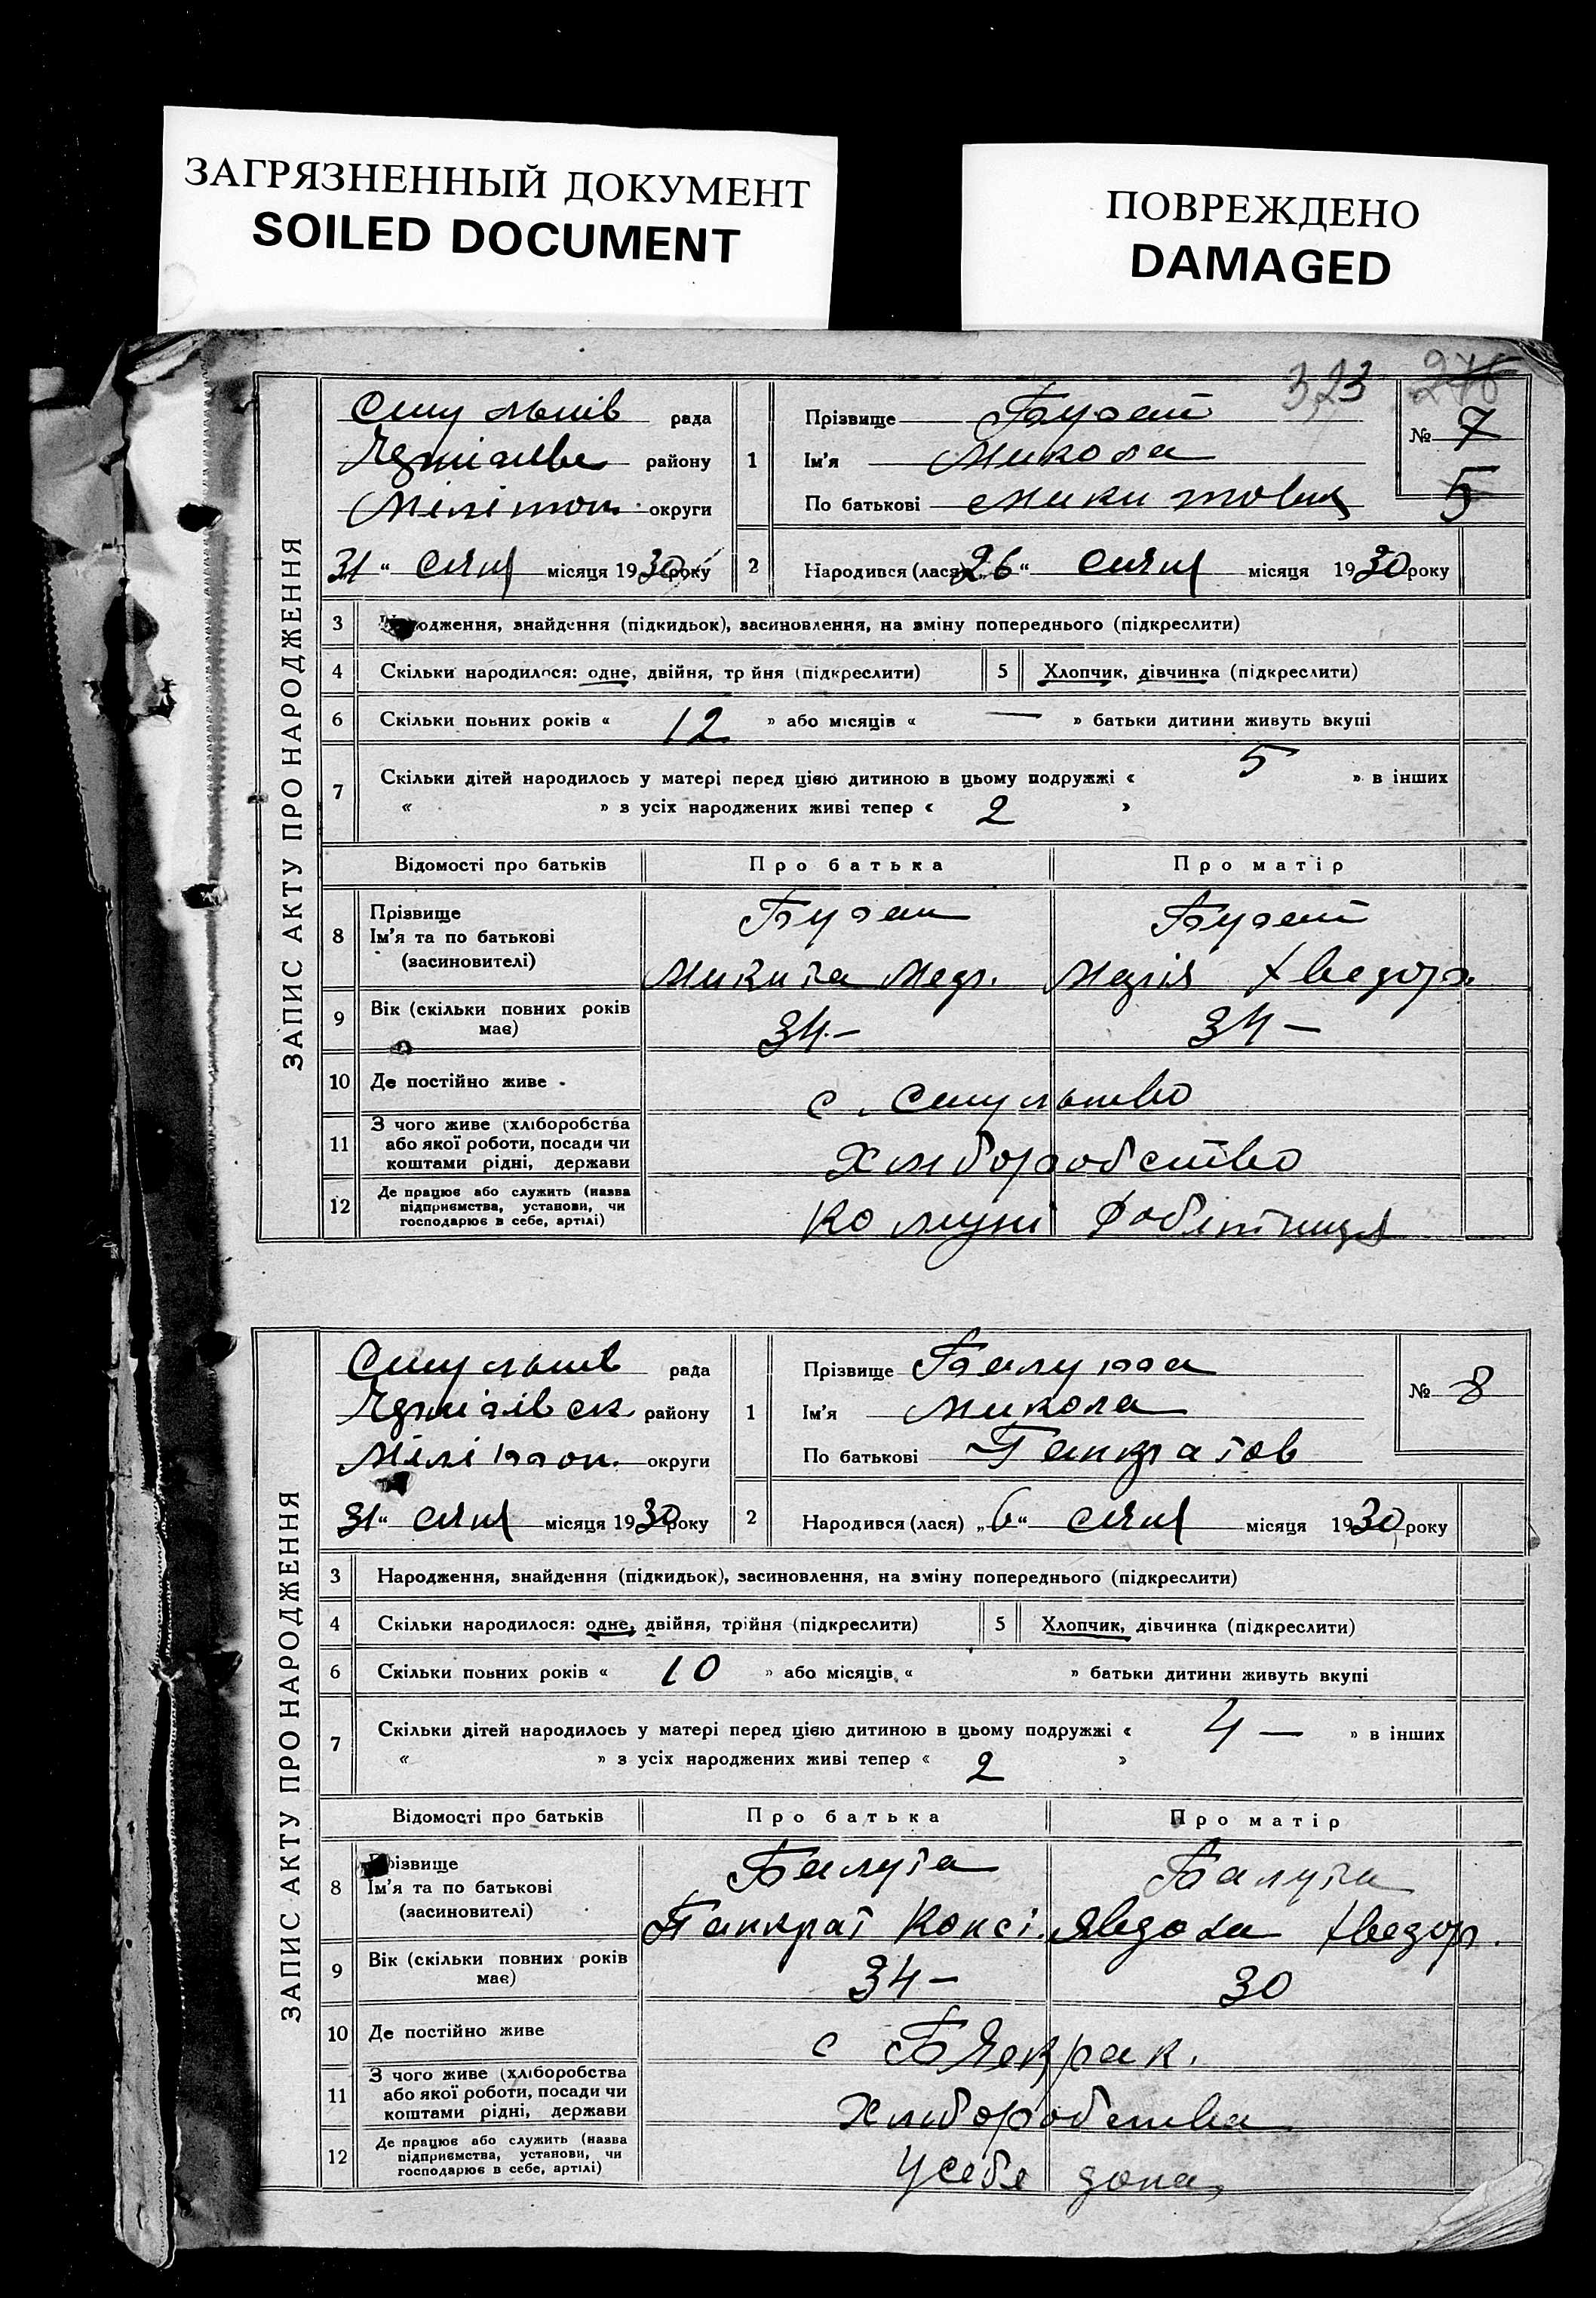 ЗАГРЯЗНЕННЫЙ ДОКУМЕНТ
SOILED DOCUMENT
ПОВРЕЖДЕНО
DAMAGED
323
ЗАПИС АКТУ ПРО НАРОДЖЕННЯ
рада
району
округи
31 " січня місяця 1930 року
1
Прізвище
Ім'я Микола
По батькові
№ 7
5
2 Народився (лася) 26 " січня місяця 1930 року
3 одження, знайдення (підкидьок), засиновлення, на зміну попереднього (підкреслити)
4 Скільки народилося: одне, двійня, тр йня (підкреслити) 5 Хлопчик, дівчинка (підкреслити)
6 Скільки повних років « 12 » або місяців « — » батьки дитини живуть вкупі
7 Скільки дітей народилось у матері перед цією дитиною в цьому подружжі « 5 » в інших
« » з усіх народжених живі тепер « 2 »
Відомості про батьків Про батька Про матір
8 Прізвище
Ім'я та по батькові
(засиновителі)
Микита Марія Хведор.
9 Вік (скільки повних років має) 34 — 34 —
10 Де постійно живе с.
11 З чого живе (хліборобства
або якої роботи, посади чи
коштами рідні, держави
Хліборобство
12 Де працює або служить (назва
підприємства, установи, чи
господарює в себе, артілі)
Комуні
ЗАПИС АКТУ ПРО НАРОДЖЕННЯ
рада
району
округи
31 " січня місяця 1930 року
1
Прізвище Балута
Ім'я Микола
По батькові Панкратов
№ 8
2 Народився (лася) „ 6 " січня місяця 1930 року
3 Народження, знайдення (підкидьок), засиновлення, на зміну попереднього (підкреслити)
4 Скільки народилося: одне, двійня, трійня (підкреслити) 5 Хлопчик, дівчинка (підкреслити)
6 Скільки повних років « 10 » або місяців « » батьки дитини живуть вкупі
7 Скільки дітей народилось у матері перед цією дитиною в цьому подружжі « 4 — » в інших
« » з усіх народжених живі тепер « 2 »
Відомості про батьків Про батька Про матір
8 Прізвище
Ім'я та по батькові
(засиновителі)
Балута Балута
Панкрат Явдоха Хведор.
9 Вік (скільки повних років має) 34 — 30
10 Де постійно живе с
11 З чого живе (хліборобства
або якої роботи, посади чи
коштами рідні, держави
Хліборобства
12 Де працює або служить (назва
підприємства, установи, чи
господарює в себе, артілі)
Усебе дома